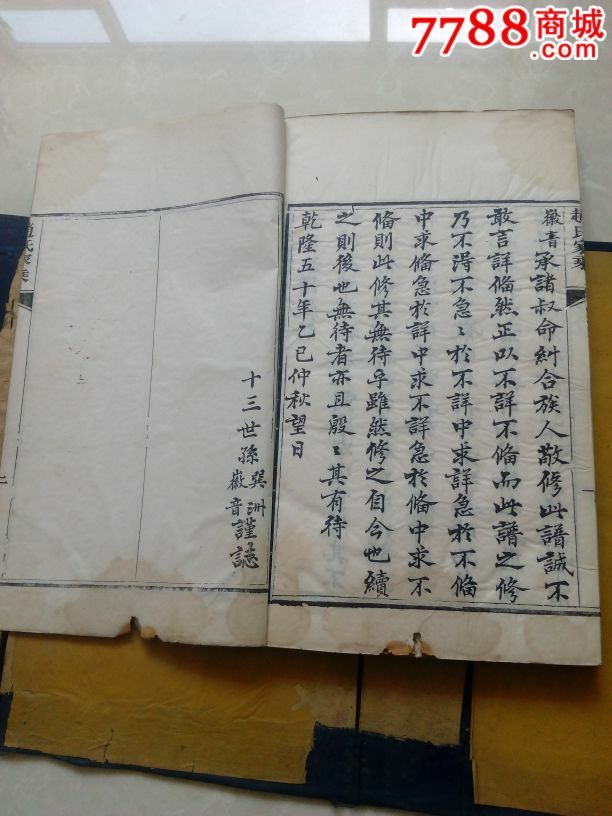 7788商城
.com
趙氏家乘
一
徽音承諸叔命糾合族人敬修此譜誠不
敢言詳俻然正以不詳不俻而此譜之修
乃不得不急〻於不詳中求詳急於不俻
中求俻急於詳中求不詳急於俻中求不
俻則此修其無待乎雖然修之自今也續
之則後也無待者亦且殷〻其有待
乾隆五十年乙巳仲秋望日
十三世孫巽洲
徽音謹誌
趙氏家乘
二